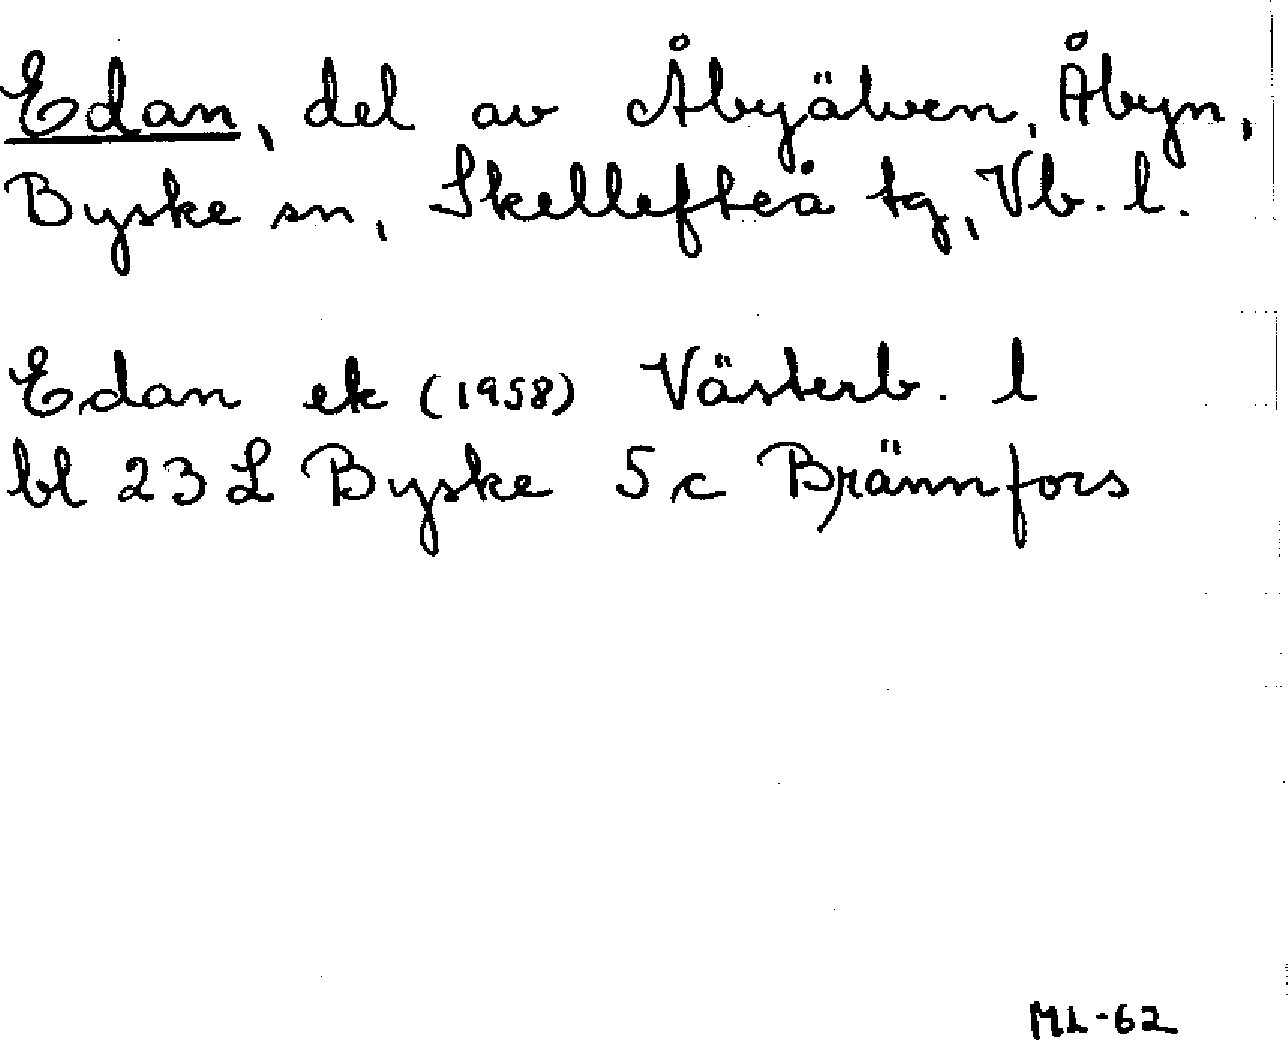 Edan, del av Åbyälven, Åbyn,
Byske sn, Skellefteå tg, Vb. l.
Edan ek (1958) Västerb. l
bl 23 L Byske 5 c Brännfors
ML-62